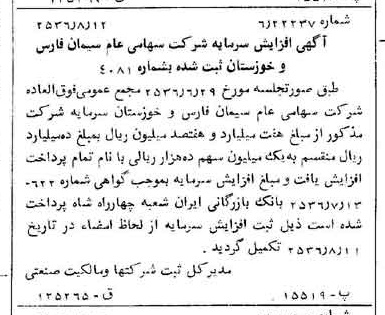 شماره ۶/۲۲۲۳۷ ۲۵۳۶/۸/۱۲
آگهی افزایش سرمایه شرکت سهامی عام سیمان فارس
و خوزستان ثبت شده بشماره ۴۰۸۱
طبق صورتجلسه مورخ ۲۵۳۶/۶/۲۹ مجمع عمومی فوق‌العاده
شرکت سهامی عام سیمان فارس و خوزستان سرمایه شرکت
مذکور از مبلغ هفت میلیارد و هفتصد میلیون ریال بمبلغ ده‌میلیارد
ریال منقسم به‌یک میلیون سهم ده‌هزار ریالی با نام تمام پرداخت
افزایش یافت و مبلغ افزایش سرمایه بموجب گواهی شماره ۶۲۲-
۲۵۳۶/۷/۱۳ بانک بازرگانی ایران شعبه چهارراه شاه پرداخت
شده است ذیل ثبت افزایش سرمایه از لحاظ امضاء در تاریخ
۲۵۳۶/۸/۱۱ تکمیل گردید .
مدیرکل ثبت شرکتها ومالکیت صنعتی
پ- ۱۵۵۱۹ ق- ۱۲۵۲۶۵